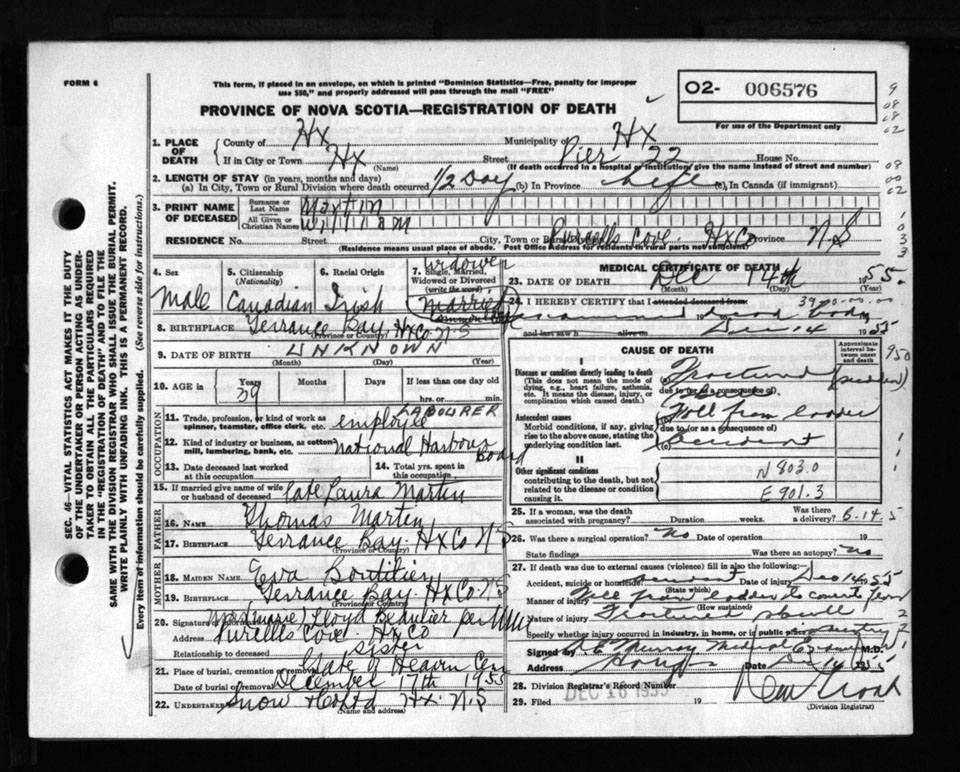 FORM 6
This form, if placed in an envelope, on which is printed "Dominion Statistics—Free, penalty for improper
use $50," and properly addressed will pass through the mail "FREE"
O2- 006576
For use of the Department only
PROVINCE OF NOVA SCOTIA—REGISTRATION OF DEATH
SEC. 46—VITAL STATISTICS ACT MAKES IT THE DUTY
OF THE UNDERTAKER OR PERSON ACTING AS UNDER-
TAKER TO OBTAIN ALL THE PARTICULARS REQUIRED
IN THE "REGISTRATION OF DEATH" AND TO FILE THE
SAME WITH THE DIVISION REGISTRAR WHO SHALL ISSUE THE BURIAL PERMIT.
WRITE PLAINLY WITH UNFADING INK. THIS IS A PERMANENT RECORD.
Every item of information should be carefully supplied. (See reverse side for instructions.)
1. PLACE OF DEATH
County of Hx Municipality of Hx
If in City or Town Hx Street Pier 22 House No.
(Name) (If death occurred in a hospital or institution, give the name instead of street and number)
2. LENGTH OF STAY (in years, months and days)
(a) In City, Town or Rural Division where death occurred 1/2 Day (b) In Province Life (c) In Canada (if immigrant)
3. PRINT NAME OF DECEASED
Surname or Last Name Martin
All Given or Christian Names William
RESIDENCE No. Street City, Town or Rural Purcells Cove. HxCo Province N.S
(Residence means usual place of abode. Post Office Address for residents in rural parts not valid)
4. Sex Male
5. Citizenship (Nationality) Canadian
6. Racial Origin Irish
7. Single, Married, Widowed or Divorced (write the word) Widower Married
8. BIRTHPLACE Terrance Bay. Hx Co N.S
9. DATE OF BIRTH UNKNOWN
(Month) (Day) (Year)
10. AGE in Years 39 Months Days If less than one day old
hrs. or min.
OCCUPATION
11. Trade, profession, or kind of work as spinner, teamster, office clerk, etc. employee LABOURER
12. Kind of industry or business, as cotton mill, lumbering, bank, etc. National Harbour Board
13. Date deceased last worked at this occupation
14. Total yrs. spent in this occupation
15. If married give name of wife or husband of deceased late Laura Martin
FATHER
16. NAME Thomas Martin
17. BIRTHPLACE Terrance Bay. HxCo N.S
(Province or Country)
MOTHER
18. MAIDEN NAME Eva Boutilier
19. BIRTHPLACE Terrance Bay. HxCo. N.S
(Province or Country)
20. Signature of Mrs (Marie) Lloyd Beaulier per
Address Purcells Cove. HxCo
Relationship to deceased Sister
21. Place of burial, cremation or removal
Date of burial or removal December 17th 1955
22. UNDERTAKER Snow & Co Ltd Hx. N.S
(Name and address)
MEDICAL CERTIFICATE OF DEATH
23. DATE OF DEATH Dec 14th 1955.
(Month) (Day)
24. I HEREBY CERTIFY that I attended deceased from
dead body
and last saw h alive on Dec 14 1955
CAUSE OF DEATH
Approximate interval between onset and death
I
Disease or condition directly leading to death
(This does not mean the mode of dying, e.g., heart failure, asthenia, etc. It means the disease, injury, or complication which caused death.)
due to (or as a consequence of)
Antecedent causes
Morbid conditions, if any, giving rise to the above cause, stating the underlying condition last.
(b) Fell from ladder
due to (or as a consequence of)
(c) accident
II
Other significant conditions
contributing to the death, but not related to the disease or condition causing it.
N 803.0
E 901.3
25. If a woman, was the death associated with pregnancy? Duration weeks. Was there a delivery? 6.14.5
26. Was there a surgical operation? No Date of operation 19
State findings Was there an autopsy? no
27. If death was due to external causes (violence) fill in also the following:
Accident, suicide or homicide? accident Date of injury Dec 14 1955
(State which)
Manner of injury Fell from ladder to
(How sustained)
Nature of injury Fractured skull
Specify whether injury occurred in industry, in home, or in public place industry
Signed by Murray Medical Examiner M.D.
Address Date Dec 14 1955
28. Division Registrar's Record Number
29. Filed DEC 16 1955 19
(Division Registrar)